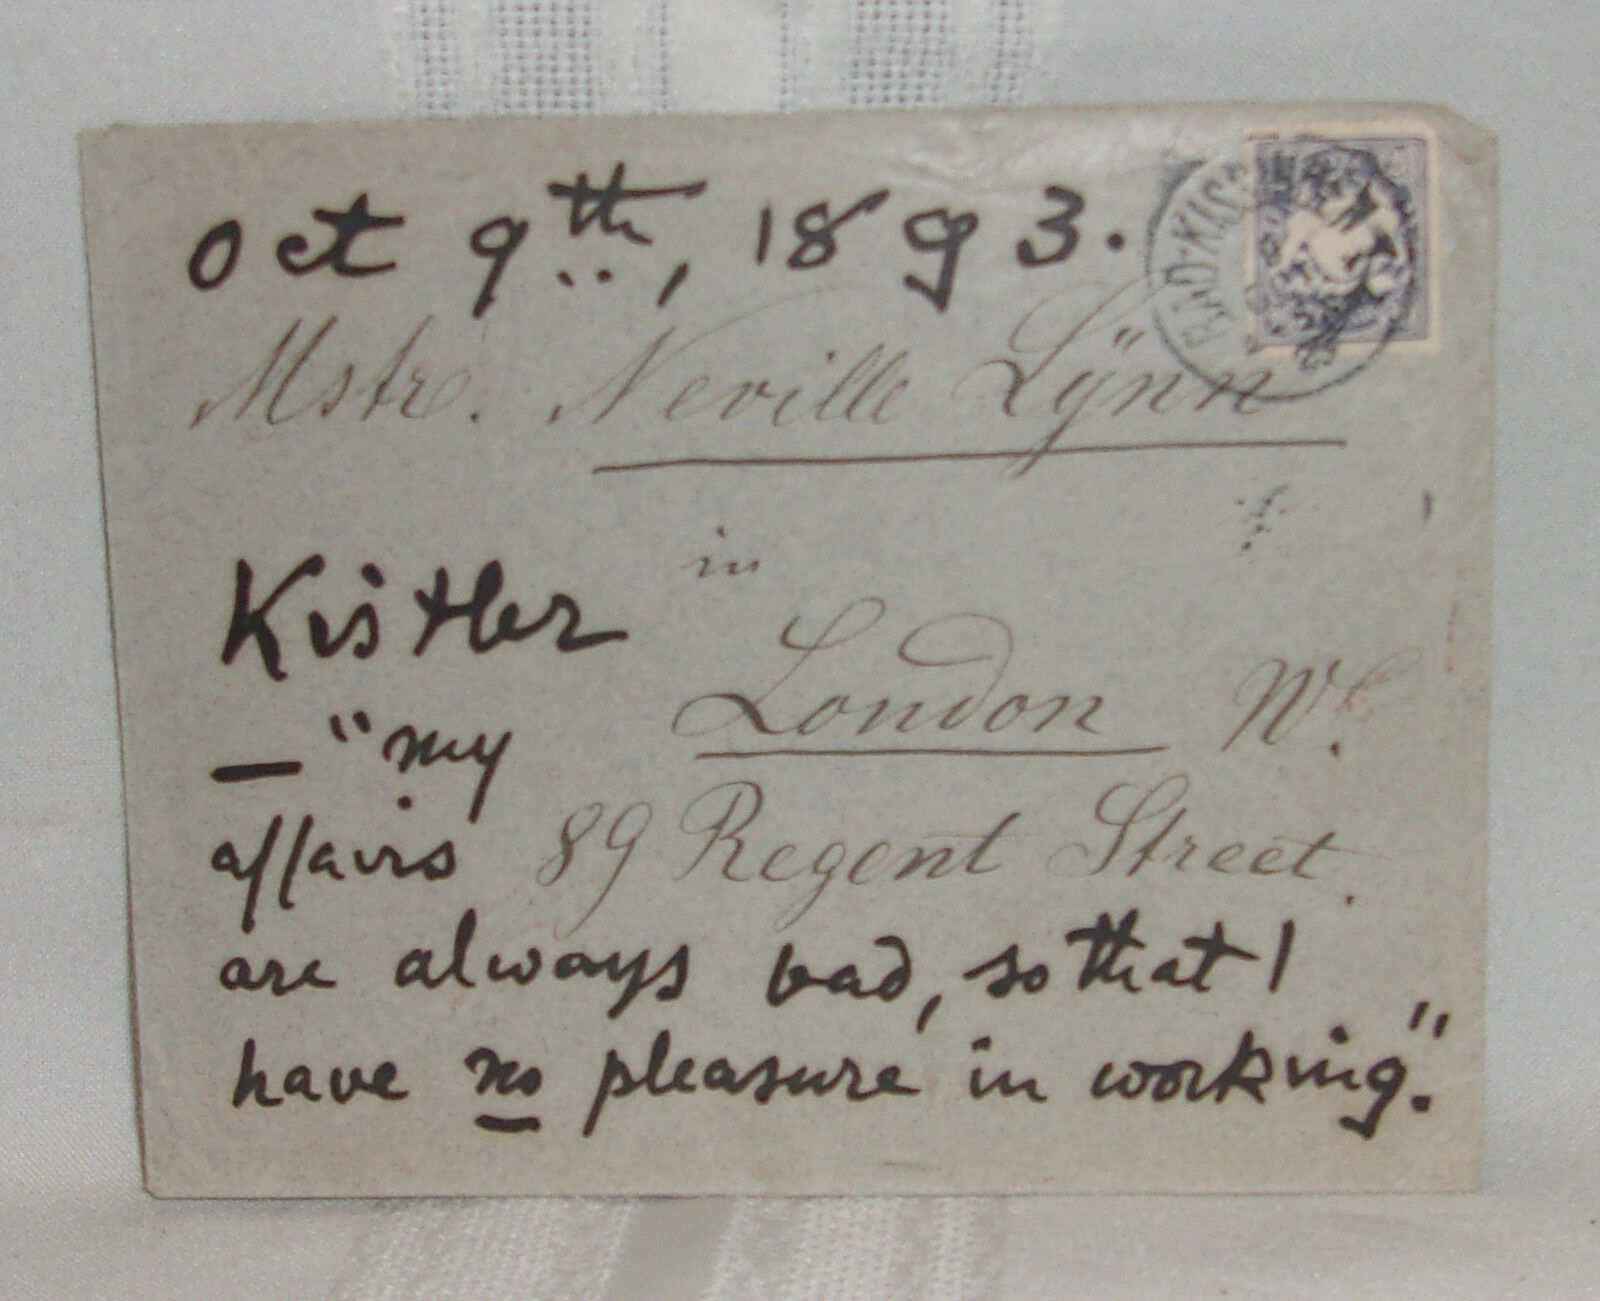 Oct 9th, 1893.
BAD-KISS
Mstr. Neville Lÿnn
in
Kistler
London W.
— "my
affairs
89 Regent Street.
are always bad, so that I
have no pleasure in working."